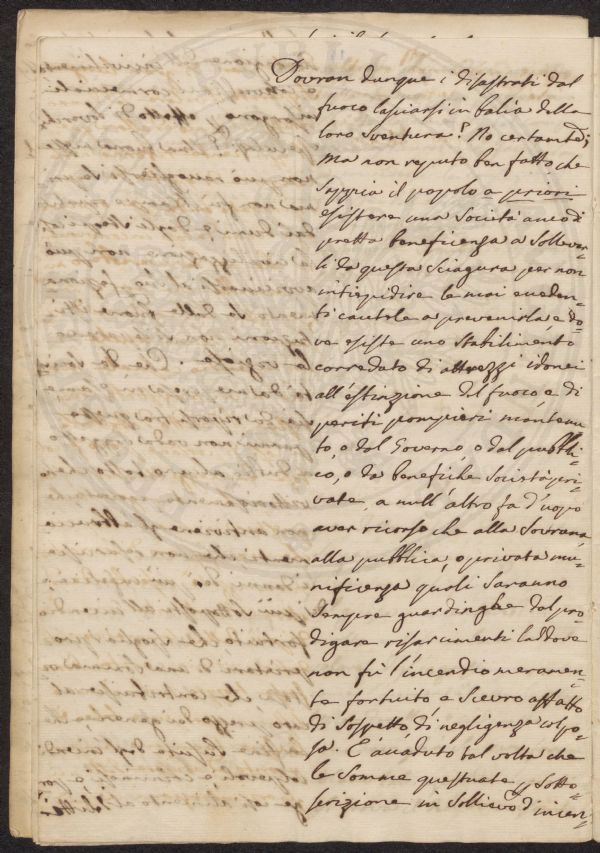 Dovran dunque i disastrati dal
fuoco lasciarsi in balìa della
loro sventura? No certamte;
Ma non reputo ben fatto che
sappia il popolo a priori
esistere una Società anco di
pretta beneficenza a sollevar-
li da questa sciagura per non
intiepidire le mai eueden-
ti cautele a prevenirla, e do-
ve esiste uno stabilimento
corredato di attrezzi idonei
all'estinzione del fuoco, e di
periti pompieri mantenu-
to, o dal Governo, o dal pubbli-
co, o da benefiche Società pri-
vate, a null'altro fa d'uopo
aver ricorso che alla Sovrana
alla pubblica, o privata mu-
nificenza quali saranno
sempre guardinghe dal pro-
digare risarcimenti laddove
non fù l'incendio meramen-
te fortuito, e scevro affatto
di sospetto di negligenza colpo-
sa. È accaduto tal volta che
le somme questuate, sotto-
scrizione in sollievo d'incen-